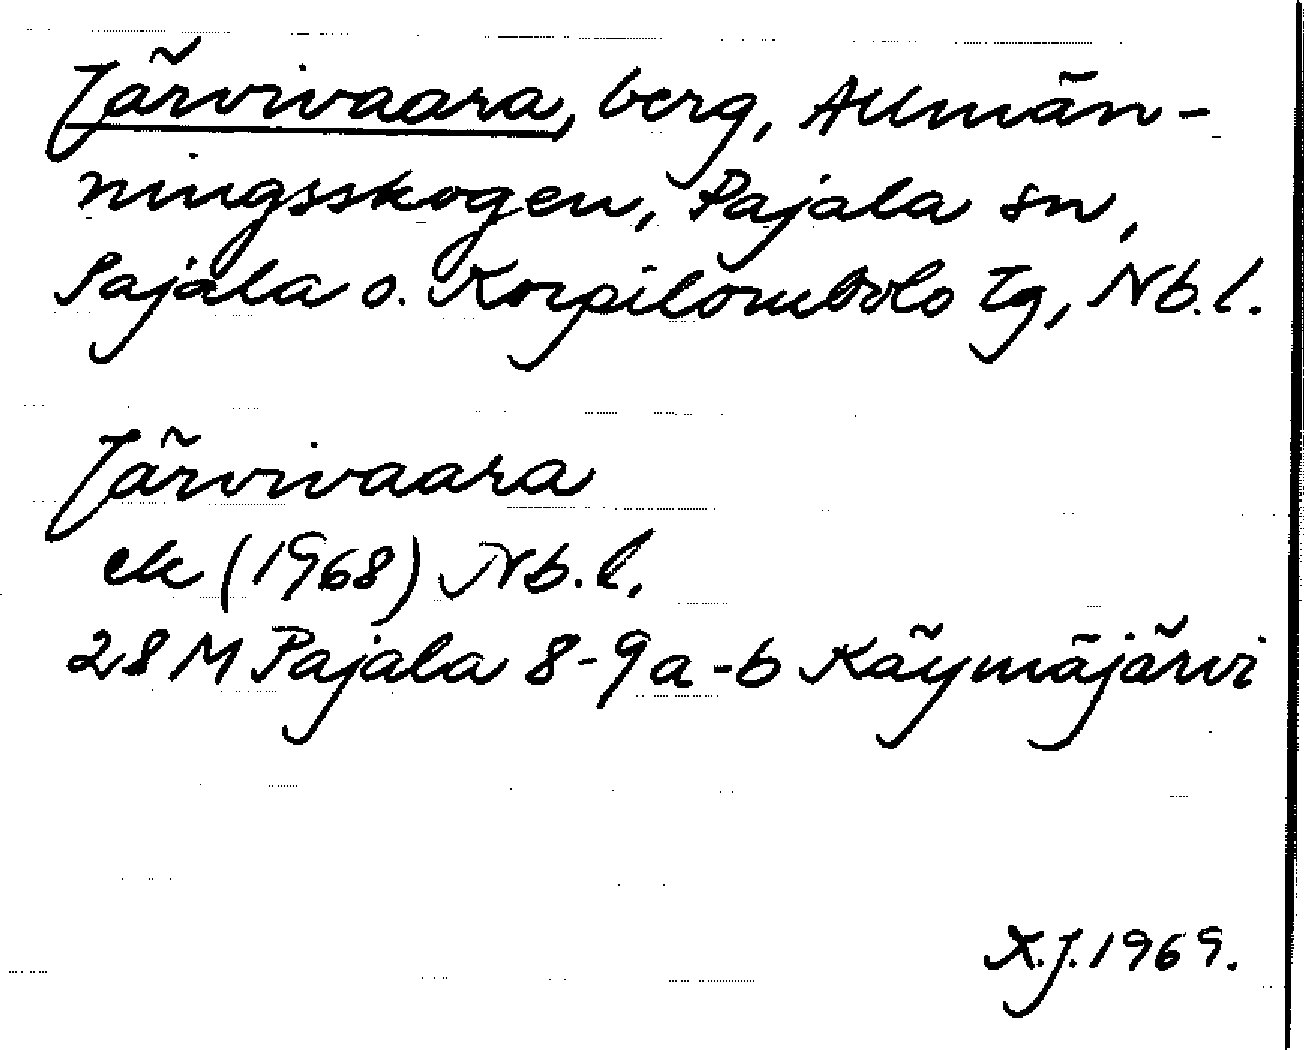 Järvivaara, berg, Allmän-
ningsskogen, Pajala sn,
Pajala o. Korpilombolo tg, Nb.l.
Järvivaara
ek (1968) Nb.l.
28 M Pajala 8-9 a-b Käymäjärvi
X.J. 1969.